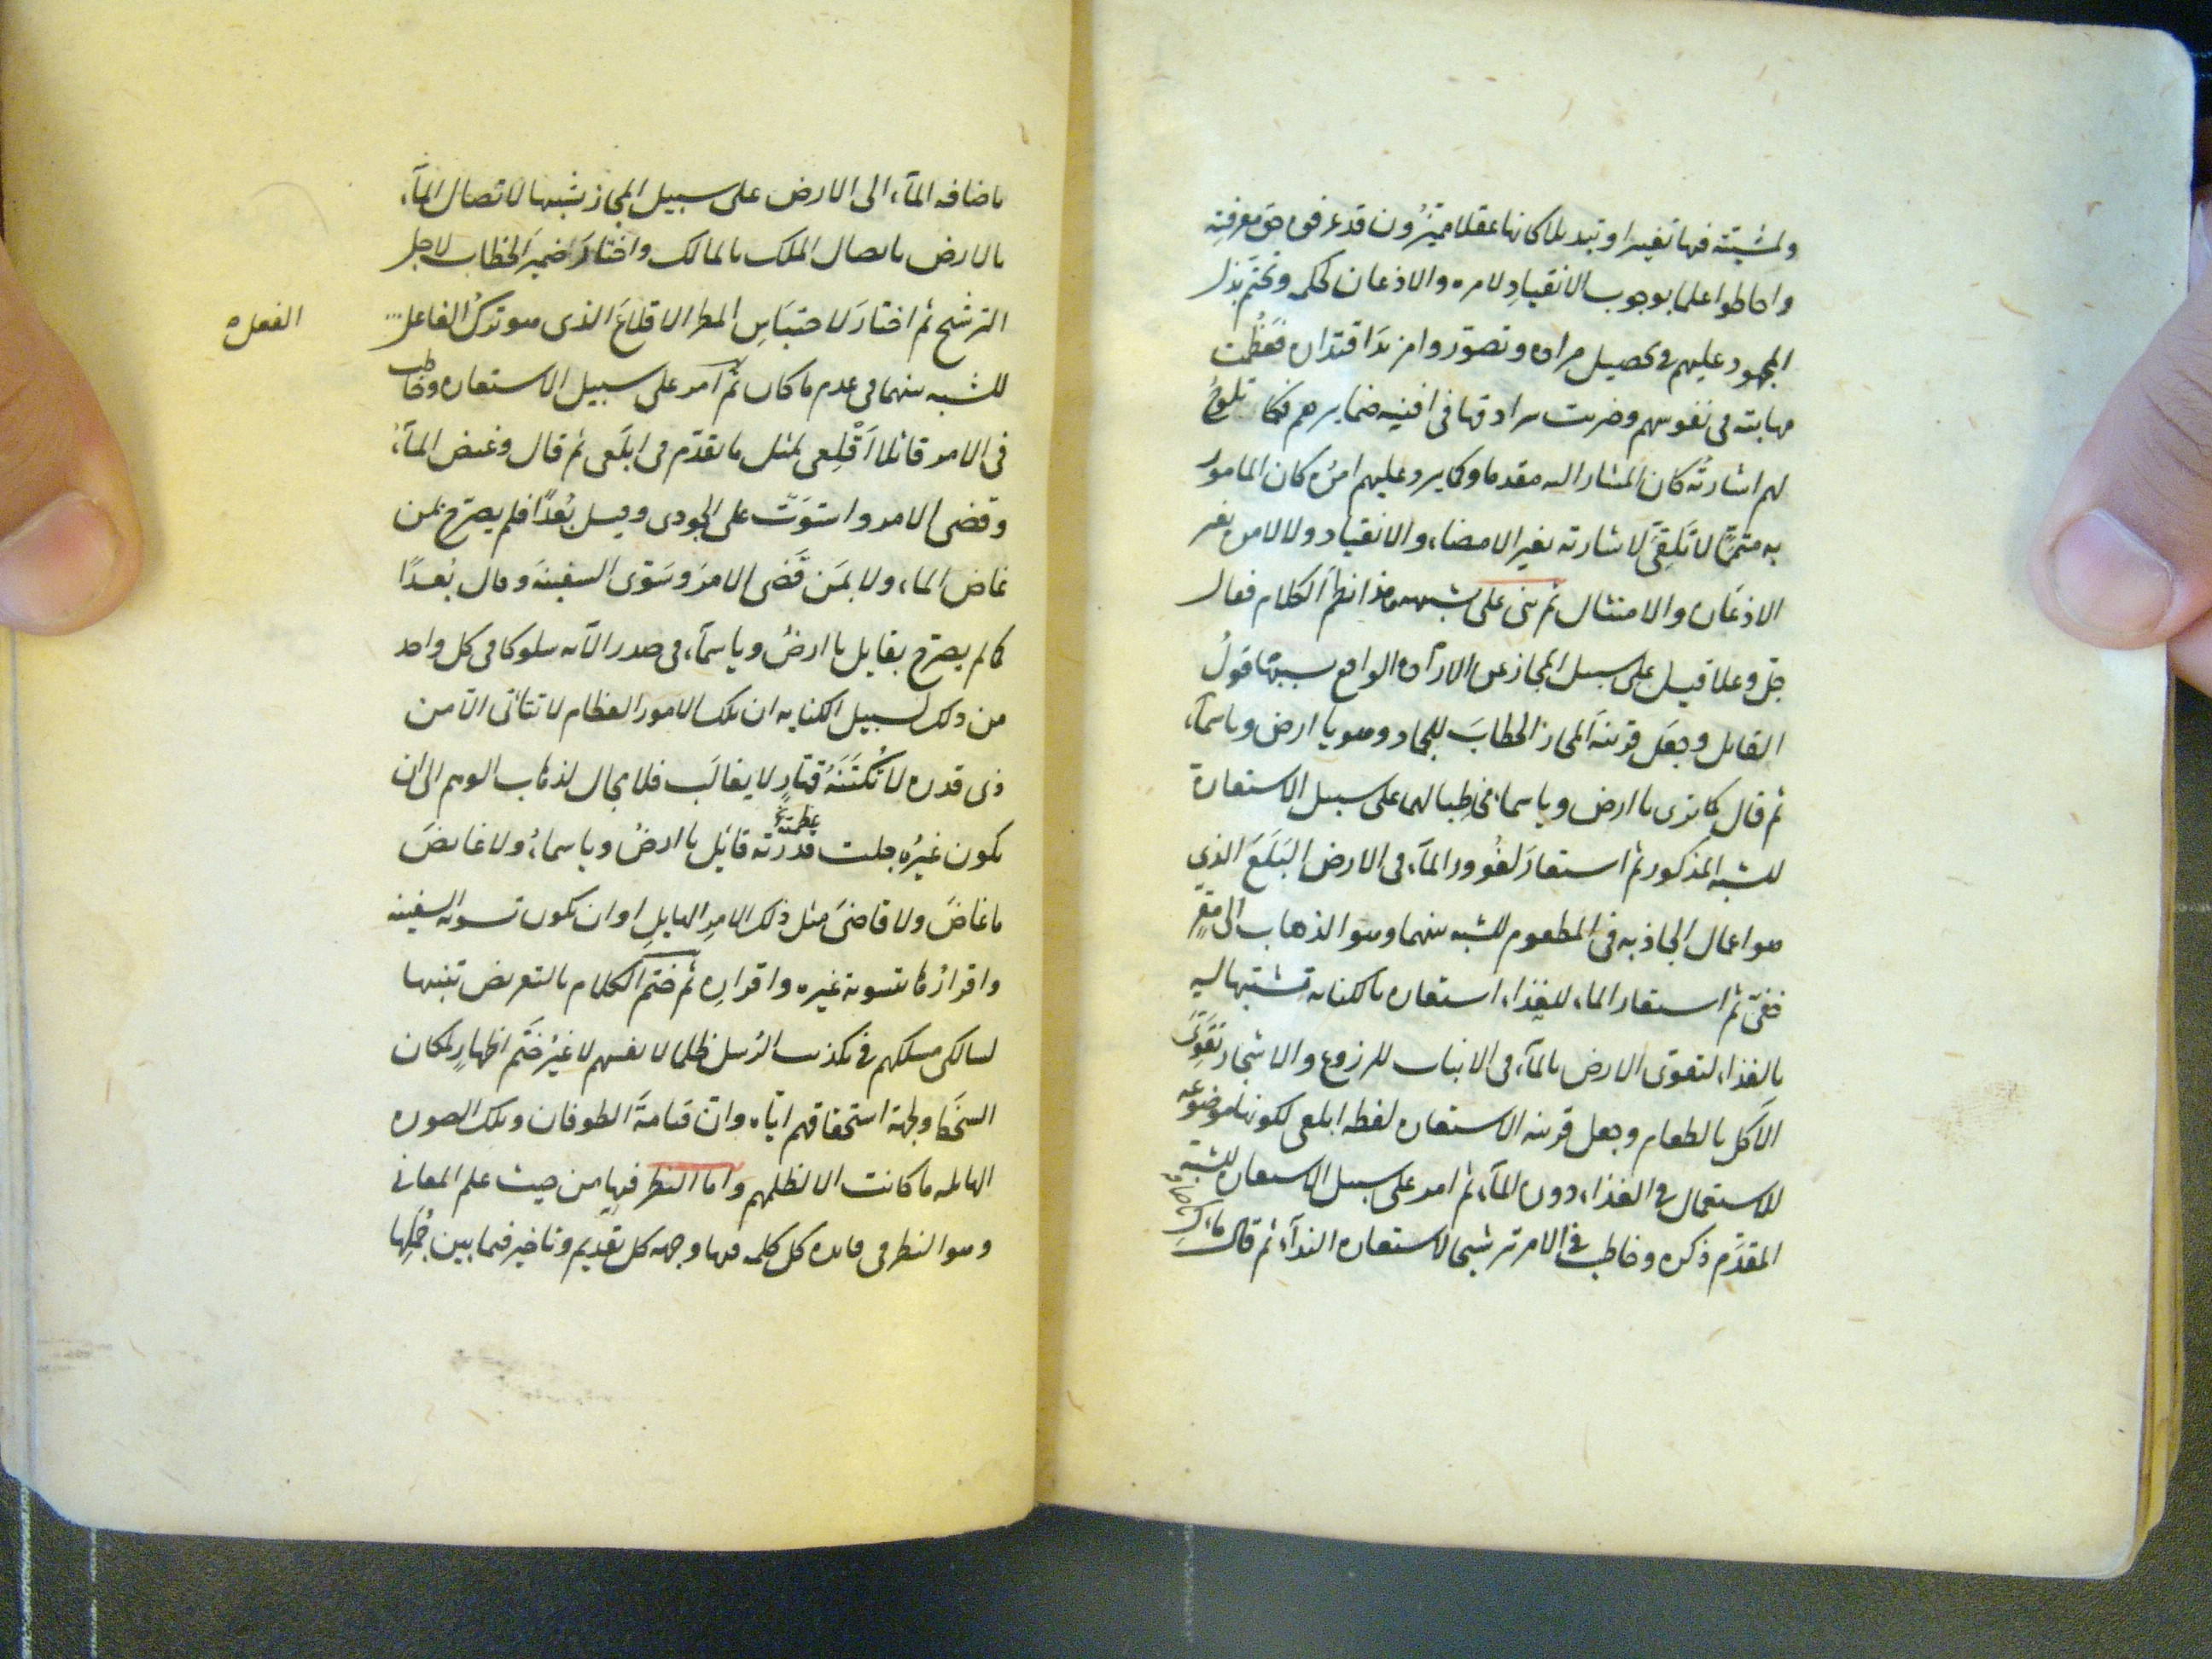 ولمشيته فيها تغييرا وتبديلا كانها عقلا مميّزُون قد عرفوه حق معرفته
واحاطوا علما بوجوب الانقيادِ لامره والاذعان لحكمه وتحتّم بذل
المجهود عليهم فى تحصيل مراده وتصوّروا مزيدَ اقتداره فعَظُمت
مهابته فى نفوسهم وضربت سرادقها فى افنيه ضمايرهم فكما تلوحُ
لهم اشارتُه كان المشار اليه مقدما وكما يرد عليهم امرُه كان المامور
به متممًا لا تَلَقّىَ لاشارته بغير الامضاء والانقياد ولا لامره بغير
الاذعَان والامتثال ثم بنى على تشبيهه هذا نظمَ الكلام فقال
جلّ وعلا قيل على سبيل المجاز عن الارادة الواقع بسببها قولُ
القايل وجعَل قرينةَ المجاز الخطابَ للجماد وهو يا ارض وياسمآء
ثم قال كما ترى يا ارض وياسمآء مخاطِبا لهما على سبيل الاستعارة
للشبه المذكور ثم استعارَ لغُوور المآء فى الارض البَلَعَ الذى
هو اعمال الجاذبه فى المطعوم للشبه بينهما وهو الذهاب الى مقرٍّ
خفىّ ثم استعار الماء للغِذاء استعاره بالكنايه تشبيها له
بالغذاء لتقوى الارض بالمآء فى الانبات للزروع والاشجار تَقَوِّىَ
الآكل بالطعام وجعل قرينه الاستعاره لفظه ابلعى لكونها موضوعه
للاستعمال فى الغذاء دون المآء ثم امر على سبيل الاستعاره للشبه
المقدَّم ذكره وخاطب فى الامر ترشيحا لاستعاره الندآء ثم قال ماءكِ
باضافه المآء الى الارض على سبيل المجاز تشبيها لاتصال المآء
بالارض باتصال الملك بالمالك واختارَ ضميرَ الخطاب لاجل
الترشيح ثم اختارَ لاحتبَاسِ المطر الاقلاعَ الذى هو تركُ الفاعل
الفعل ه
للشبه بينهما فى عدم ما كان ثم امر على سبيل الاستعاره وخاطب
فى الامر قائلا اَقْلِعى لمثل ما تقدّم فى ابلَعى ثم قال وغيض المآءُ
وقضى الامر واستوَتْ على الجودى وقيل بُعْدًا فلم يصرّح بمن
غاض الماء ولا بمَن قَضى الامرَ وسَوّى السفينةَ وقال بُعدًا
كما لم يصرّح بقايل يا ارضُ وياسمآء فى صدر الآيه سلوكا فى كل واحد
من ذلك لسبيل الكنايه ان تلك الامور العظام لا تتأتى الّا من
ذى قدره لا تُكْتَنَهُ قهّارٍ لا يغالَب فلا مجال لذهاب الوهم الى ان
يكون غيرُه جلت قدرته قائِل يا ارضُ وياسماءُ ولا غايضَ
عظمته
ما غاضَ ولا قاضىَ مثل ذلك الامرِ الهايل او ان تكون تسويه السفينه
واقرارُها بتسويه غيره واقرارِه ثم ختم الكلام بالتعريض تنبيها
لسالكى مسلكهم فى تكذيب الرُسل ظلما لانفسهم لا غيرُ ختْم اظهارٍ لمكان
السخَط ولجهة استحقاقهم ايّاه وانّ قيامةَ الطوفان وتلك الصوره
الهايله ما كانت الا لظلمهم واما النظر فيها من حيث علم المعانى
وهو النظر فى فايده كل كلمه فيها وجهه كل تقديم وتاخير فيما بين جُمَلِها